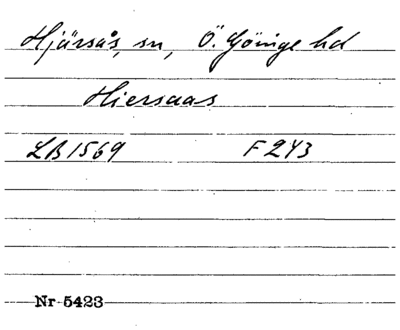 Hjärsås, sn, Ö. Göinge hd
Hiersaas
LB 1569 F 243
Nr 5423